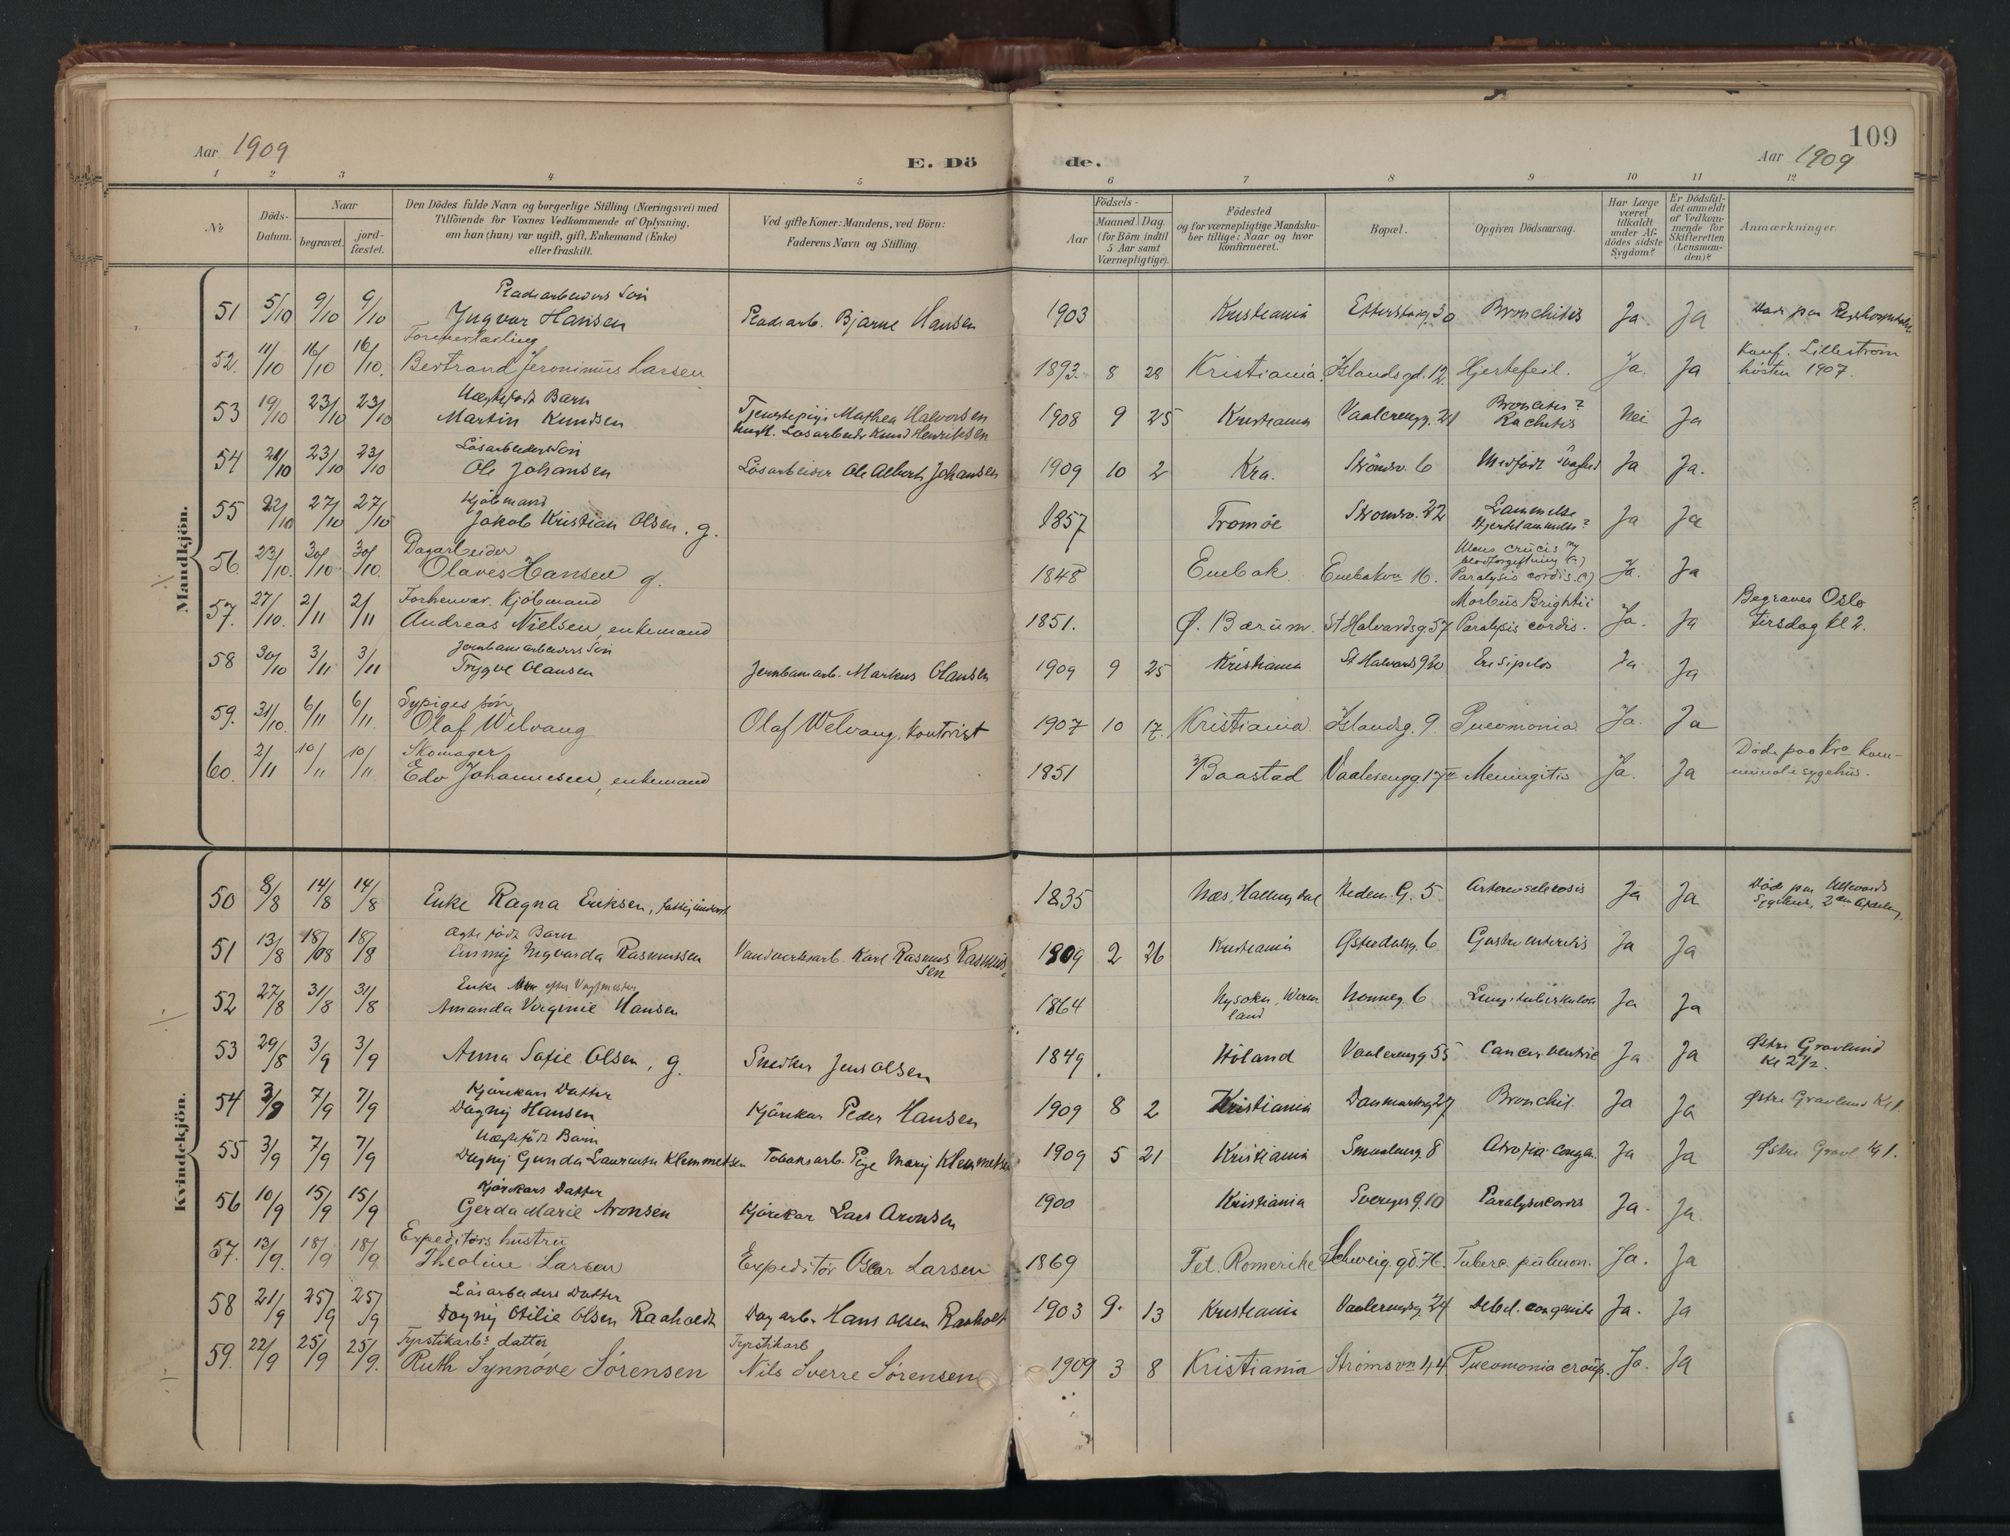 109
Aar 1909
E. Dö
de.
Aar 1909
1 2 3 4 5 6 7 8 9 10 11 12
№
Döds-
Datum.
Naar
begravet.
jord-
fæstet.
Den Dödes fulde Navn og borgerlige Stilling (Næringsvei) med
Tilföiende for Voxnes Vedkommende af Oplysning,
om han (hun) var ugift, gift, Enkemand (Enke)
eller fraskilt.
Ved gifte Koner: Mandens, ved Börn:
Faderens Navn og Stilling.
Födsels-
Aar
Maaned
Dag.
(for Börn indtil
5 Aar samt
Værnepligtige).
Födested
og for værnepligtige Mandska-
ber tillige: Naar og hvor
konfirmeret.
Bopæl.
Opgiven Dödsaarsag.
Har Læge
været
tilkaldt
under Af-
dödes sidste
Sygdom?
Er Dödsfal-
det anmeldt
af Vedkom-
mende for
Skifteretten
(Lensman-
den)?
Anmærkninger.
Mandkjön.
51 5/10 9/10 9/10 Søn
Yngvar Hansen Bjarne Hansen 1903 Kristiania 30 Bronchitis Ja Ja
52. 11/10 16/10 16/10. Bertrand Jeronimus Larsen 1893. 8 28 Kristiania. Islandsgd. 12. Hjertefeil. Ja. Ja Konf. Lillestrøm
høsten 1907.
53 19/10 23/10 23/10 Uægtefødt Barn
Martin Knudsen Mathea Halvorsen
Løsarbeider Knud Henriksen 1908 9 25 Kristiania Vaalerengg. 21 Bronchitis?
Rachitis Nei Ja
54 21/10 23/10 23/10 Løsarbeiders Søn
Ole Johansen Løsarbeider Ole Albert Johansen 1909 10 2 Kra. Strömsv. 6 Medfødt Svaghed Ja Ja.
55 22/10 27/10 27/10 Kjøbmand
Jakob Kristian Olsen, g. 1857 Tromöe Strömsv. 22 Ja Ja
56. 23/10. 30/10 30/10. Dagarbeider
Olaves Hansen g. 1848 Enebak. Enebakvn 16. Ulcus crucis
Blodforgiftning (?)
Paralysis cordis. (?) Ja. Ja
57. 27/10. 2/11 2/11 Forhenvær. Kjøbmand
Andreas Nielsen, enkemand 1851. Ø. Bærum. St Halvardsg. 57 Morbus Brightii
Paralysis cordis. Ja. Ja Begraves Oslo
tirsdag kl 2.
58 30/10 3/11 3/11 Jernbanearbeiders Søn
Trygve Olausen Jernbanearb. Markus Olausen 1909 9 25 Kristiania St Halvardsg 20 Ja Ja
59. 31/10. 6/11 6/11. Sypiges søn
Olaf Welvang Olaf Welvang, kontorist 1907 10 17. Kristiania. Islandsg. 9. Pneumonia. Ja. Ja
60. 2/11 10/11 10/11 Skomager
Edv Johannesen, enkemand 1851 Baastad Vaalerengg 17 II Meningitis Ja. Ja Døde paa Kra kom-
munale sygehus.
Kvindekjön.
50 8/8 14/8 14/8 Enke Ragna Eriksen, 1835 Næs, Hallingdal Neden. G. 5 Arteriosclerosis Ja Ja Død paa Ullevaals
Sygehus, 2den Afdeling
51 13/8 18/08 18/8 Ægtefødt Barn
Emmy Ingvarda Rasmussen Vandverksarb. Karl Rasmus Rasmus-
sen 1909 2 26 Kristiania Østerdalsg. 6 Gastroenteritis Ja Ja
52 27/8 31/8 31/8 Enke efter Vagtmester
Amanda Virginie Hansen 1864 Werm-
land Nonneg. 6 Lungetuberkulose Ja Ja
53 29/8 3/9 3/9 Anna Sofie Olsen, g. Snedker Jens Olsen 1849 Höland Vaalereng 55 Cancer ventric Ja Ja Østre Gravlund
Kl 2 1/2.
54 3/9 7/9 7/9 Kjørekars Datter
Dagny Hansen Kjørekar Peder Hansen 1909 8 2 Kristiania Danmarksg 27 Bronchit. Ja Ja Østre Gravlund Kl 1.
55 3/9 7/9 7/9 Uægtefødt Barn
Dagny Gunda Laurentse Klemmetsen Tobaksarb. Pige Mary Klemmetsen 1909 5 21 Kristiania Smaaleng. 8 Atrofia congen. Ja Ja Østre Gravl Kl 1.
56 10/9 15/9 15/9 Kjørekars Datter
Gerda Marie Aronsen Kjørekar Lars Aronsen 1900 Kristiania Sveriges g. 10 Paralysis cordis Ja. Ja.
57. 13/9. 18/9 18/9 Expeditørs hustru
Theoline Larsen Expeditør Oscar Larsen 1869 Fet. Romerike Schweig. gd. 76. Tuberc. pulmon. Ja. Ja
58 21/9 25/9 25/9 Løsarbeiders Datter
Dagny Otilie Olsen Raaholdt Dagarb. Hans Olsen Raaholt 1903 9. 13 Kristiania Vaalerengg 24 Debil. congenita Ja. Ja
59. 22/9 25/9 25/9. Fyrstikarbs datter
Ruth Synnøve Sørensen Fyrstikarb
Nils Sverre Sørensen 1909 3 8 Kristiania Strømsvn 44 Pneumonia croup. Ja. Ja